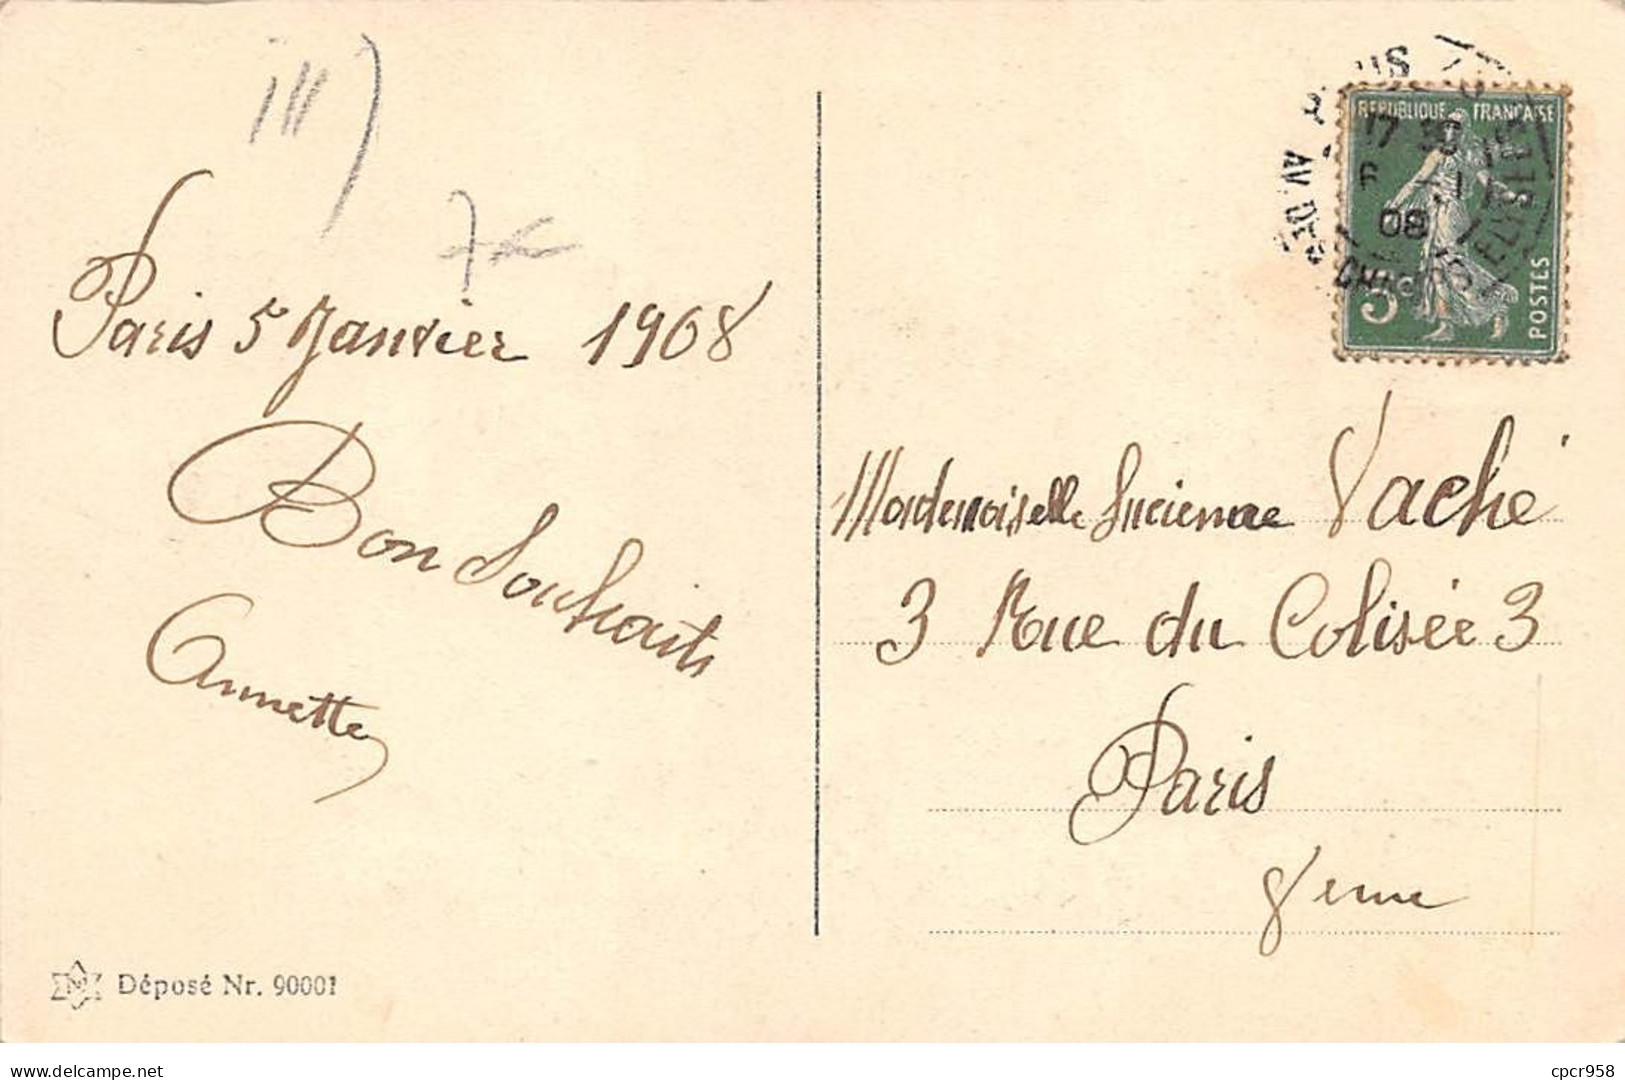 Paris 5 Janvier 1908
Bon Souhaits
Annette
Déposé Nr. 90001
REPUBLIQUE FRANÇAISE
POSTES
5c
17 30
08
Mademoiselle Lucienne Vaché
3 Rue du Colisée 3
Paris
8eme
www.delcampe.net
cpcr958